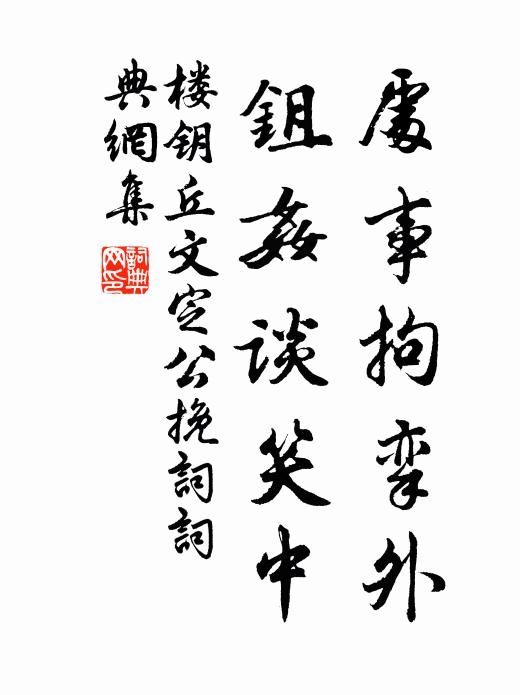 處事拘挛外
鉏姦談笑中
楼钥丘文定公挽詞詞
典網集
詞典
网印